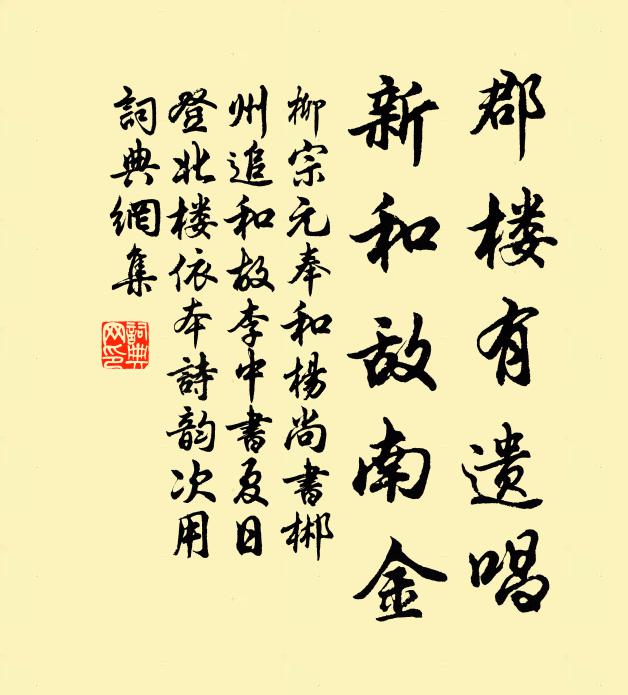 郡楼有遗唱
新和敌南金
柳宗元奉和杨尚書郴
州追和故李中書夏日
登北楼依本詩韵次用
詞典網集
詞典
网印